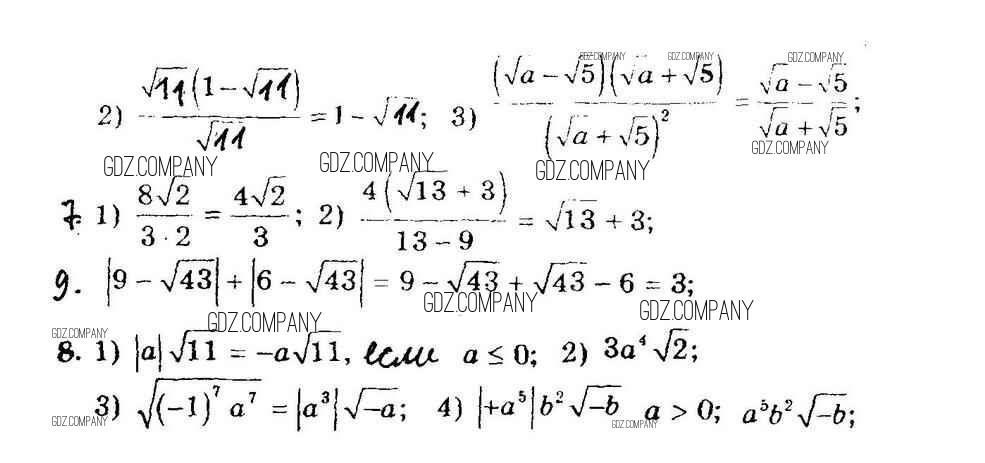 GDZ.COMPANY GDZ.COMPANY GDZ.COMPANY
2) √11(1 − √11) / √11 = 1 − √11; 3) (√a − √5)(√a + √5) / (√a + √5)² = (√a − √5) / (√a + √5);
GDZ.COMPANY GDZ.COMPANY GDZ.COMPANY GDZ.COMPANY
7. 1) 8√2 / 3 · 2 = 4√2 / 3; 2) 4(√13 + 3) / 13 − 9 = √13 + 3;
9. |9 − √43| + |6 − √43| = 9 − √43 + √43 − 6 = 3;
GDZ.COMPANY GDZ.COMPANY GDZ.COMPANY GDZ.COMPANY
8. 1) |a|√11 = −a√11, если a ≤ 0; 2) 3a⁴√2;
3) √((−1)⁷ a⁷) = |a³|√−a; 4) |+a⁵|b²√−b a > 0; a⁵b²√−b;
GDZ.COMPANY GDZ.COMPANY